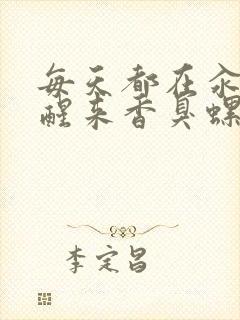 每天都在汆
醒来香臭螺
李定昌